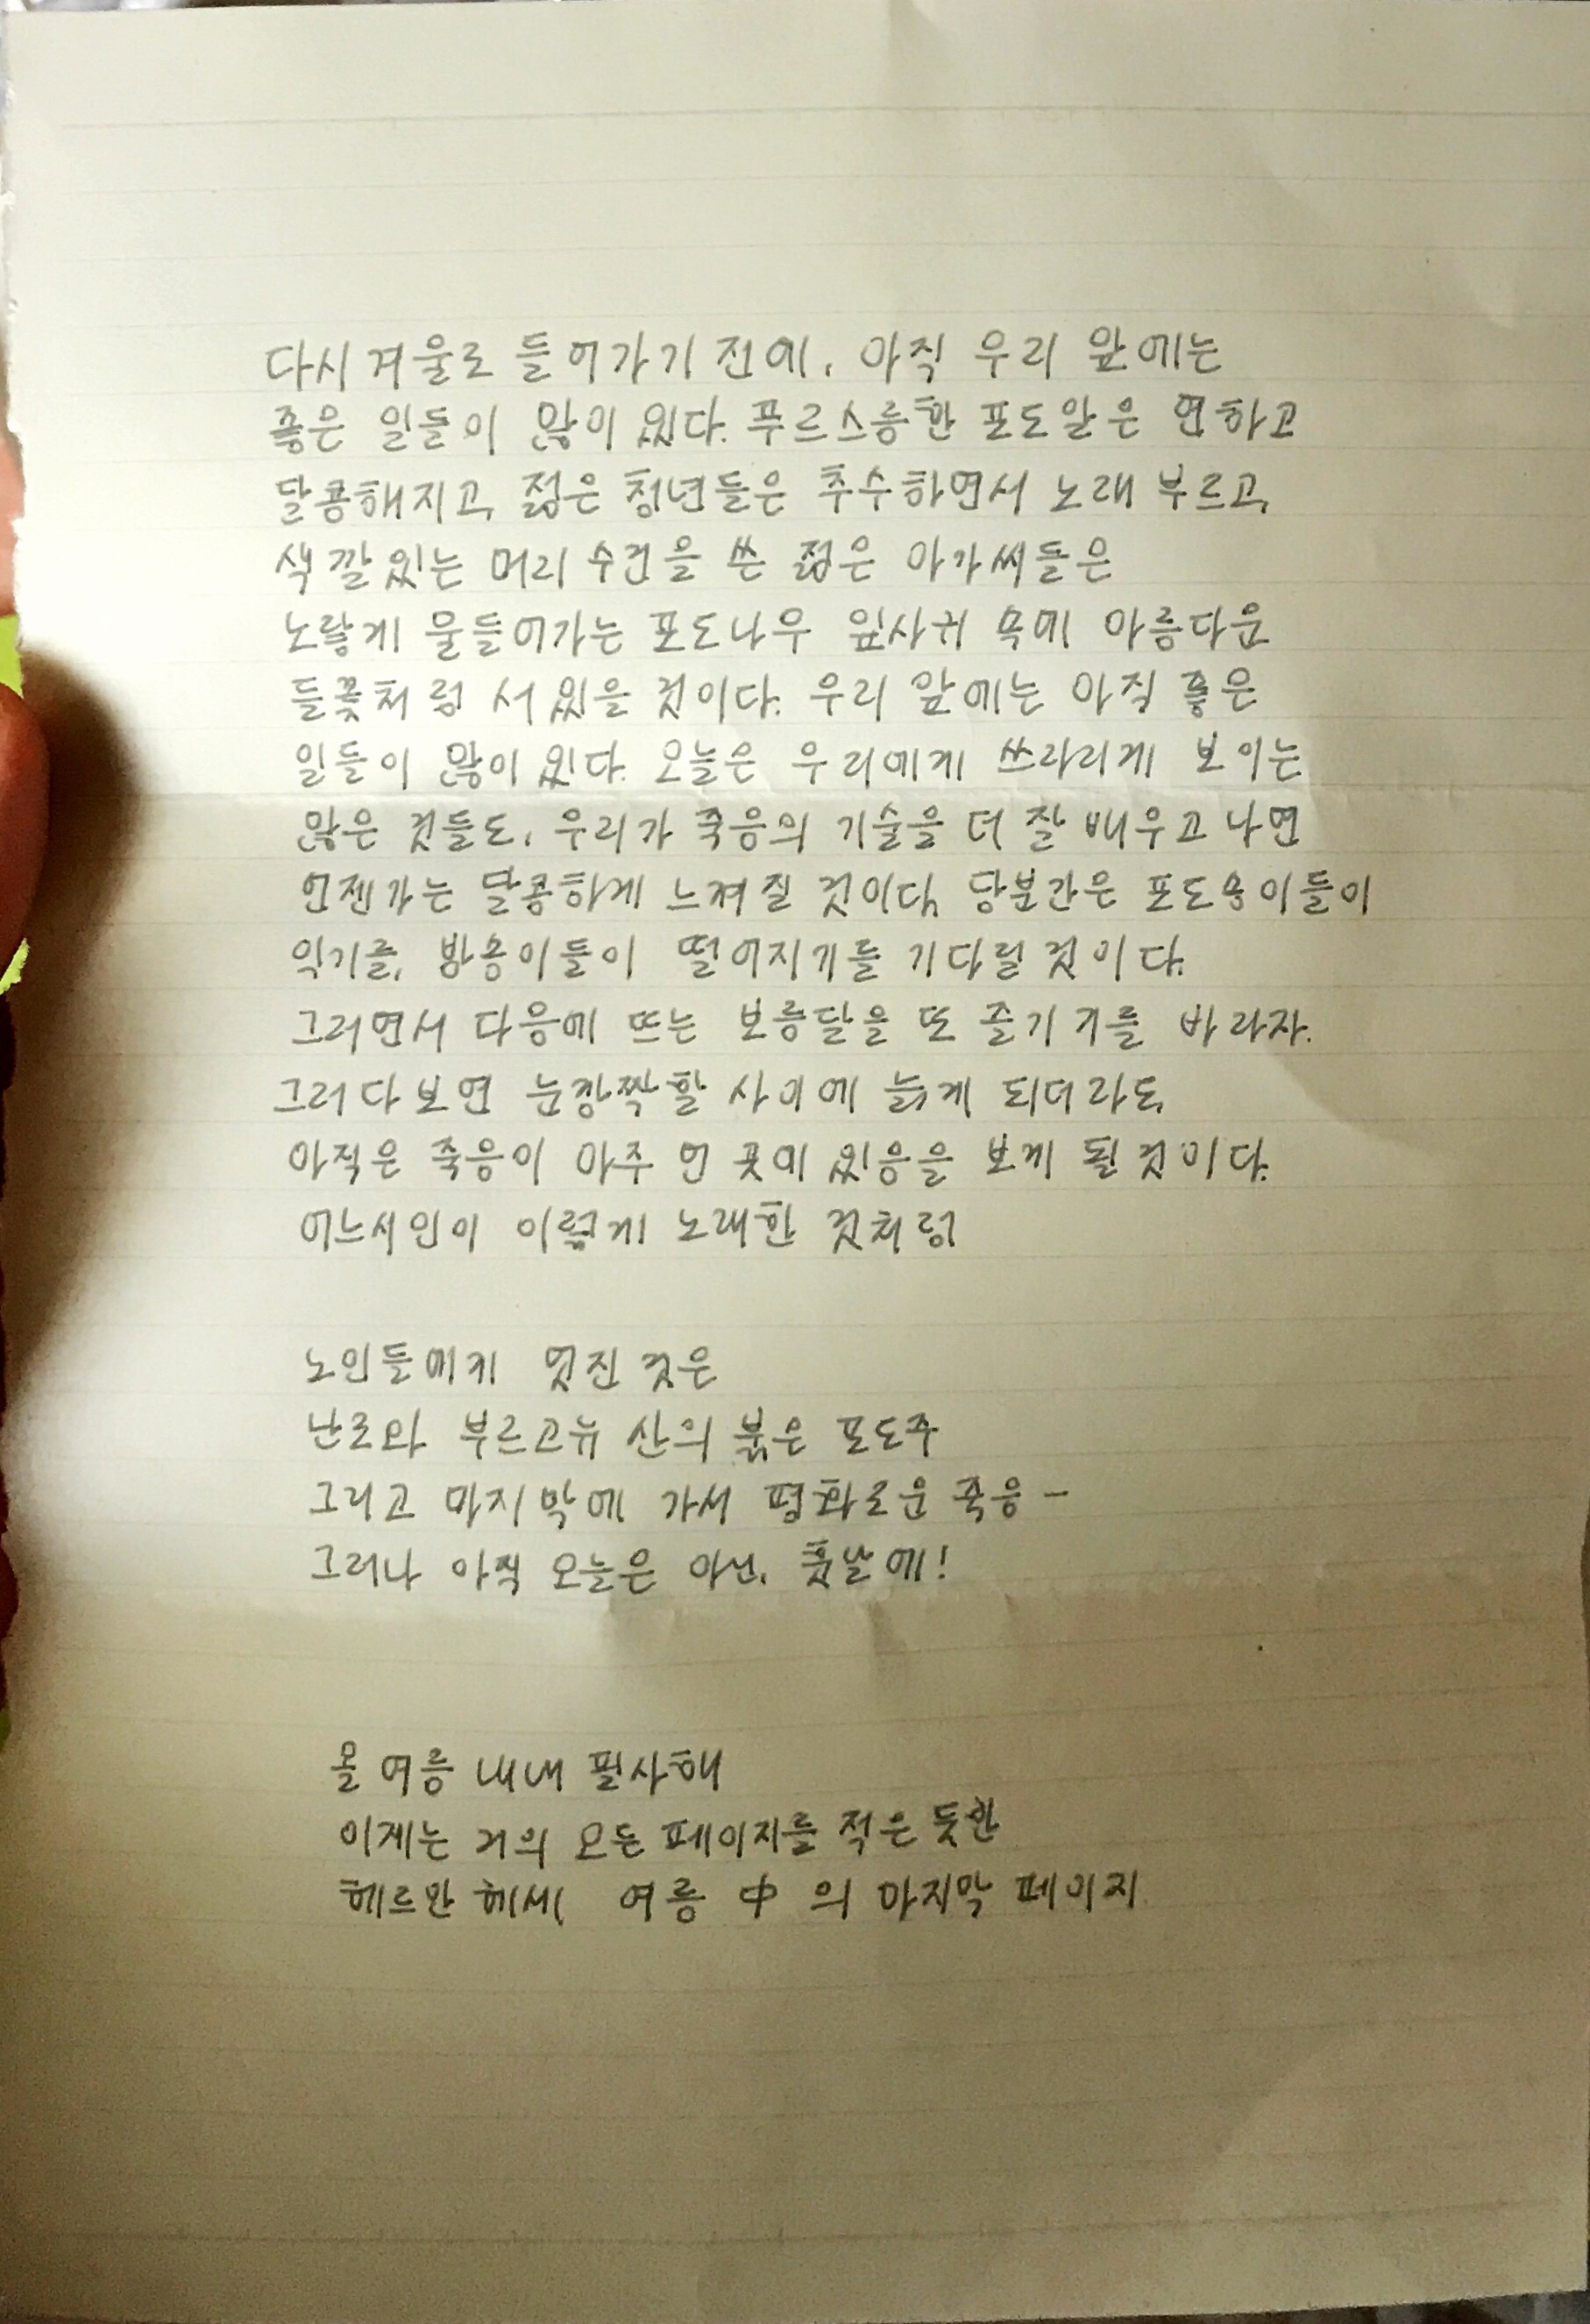 다시 겨울로 들어가기 전에, 아직 우리 앞에는
좋은 일들이 많이 있다. 푸르스름한 포도알은 연하고
달콤해지고, 젊은 청년들은 추수하면서 노래 부르고,
색깔있는 머리 수건을 쓴 젊은 아가씨들은
노랗게 물들어가는 포도나무 잎사귀 속에 아름다운
들꽃처럼 서있을 것이다. 우리 앞에는 아직 좋은
일들이 많이 있다. 오늘은 우리에게 쓰라리게 보이는
많은 것들도, 우리가 죽음의 기술을 더 잘 배우고 나면
언젠가는 달콤하게 느껴질 것이다. 당분간은 포도송이들이
익기를, 밤송이들이 떨어지기를 기다릴 것이다.
그러면서 다음에 뜨는 보름달을 또 즐기기를 바라자.
그러다보면 눈깜짝할 사이에 늙게 되더라도,
아직은 죽음이 아주 먼 곳에 있음을 보게 될 것이다.
어느시인이 이렇게 노래한 것처럼
노인들에게 멋진 것은
난로와 부르고뉴 산의 붉은 포도주
그리고 마지막에 가서 평화로운 죽음 -
그러나 아직 오늘은 아닌, 훗날에!
올 여름 내내 필사해
이제는 거의 모든 페이지를 적은 듯한
헤르만 헤세 여름 中 의 마지막 페이지